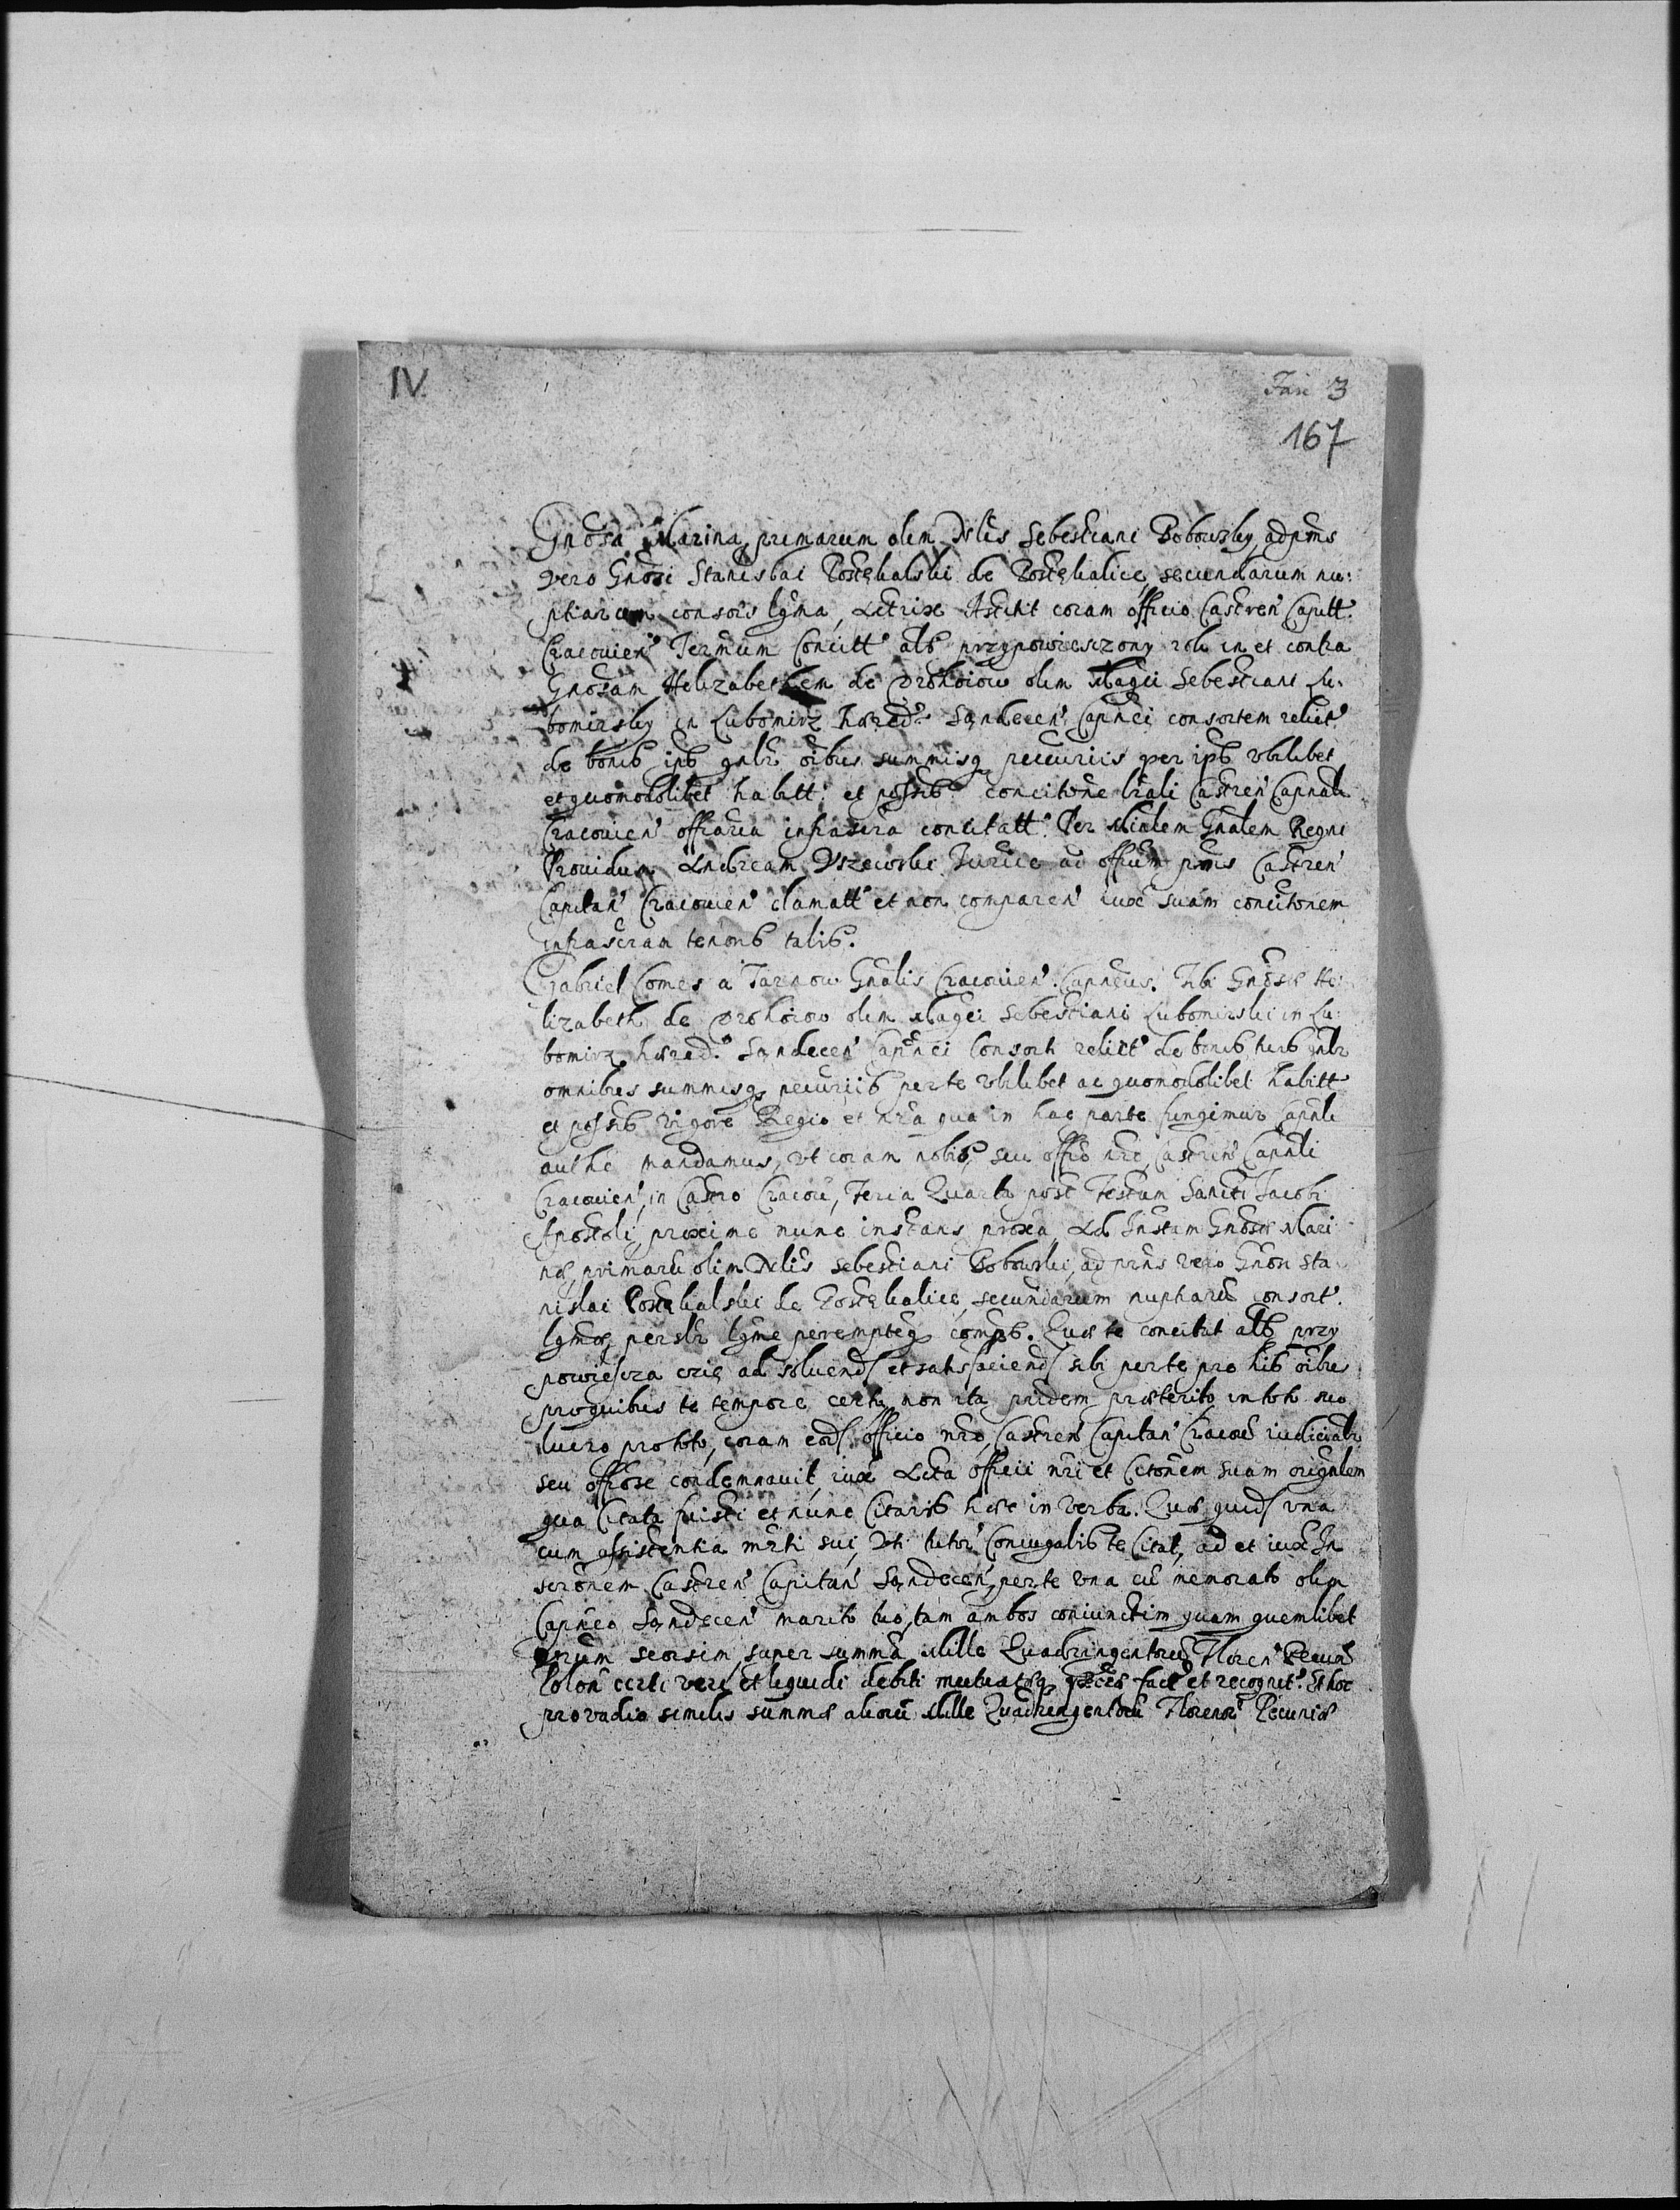 IV.
Fasc 3
167
Gnosa Marina, primarum olim Nlis Sebestiani Bobowsky, ad pns
vero Gnosi Stanislai Rostkalski de Rostkalice, secundarum nu:
ptiarum consors lgma, Actrix Astitit coram officio Castren Capitt
Cracovien Termum Concitt als przypowiesczony rok in et contra
Gnosam Helizabethem de Drohoiow olim Magci Sebestiani Lu:
bomirsky in Lubomirz hæred. Sandecen Capnei consortem relict
de bonis ipis gnlr oibus summisq pecuniis per ips vbilibet
et quomodolibet habitt et possis concitone lrali Castren Capnali
Cracovien offiaria infrascra concitatt. Per Mialem Gnalem Regni
Providum Andream Juric ad offium pns Castren
Capitan Cracovien clamatt et non comparen iuxe suam concitonem
infrascram tenoris talis.
Gabriel Comes a Tarnow Gnalis Cracovien Capneus. Tibi Gnosæ He:
lizabeth de Drohoiow olim Magci Sebestiani Lubomirski in Lu:
bomirz hæred. Sandecen Capnei Consorti relict de bonis tuis gnlr
omnibus summisq pecuniis per te vbilibet ac quomodolibet habitt
et possis vigore Regio et nra qua in hac parte fungimur Capnli
authe mandamus, vt coram nobis, seu offio nro Castren Capnli
Cracovien, in Castro Cracov, Feria Quarta post Festum Sancti Jacobi
Apostoli proxime nunc instans proxa Ad Instam Gnosæ Mari
næ, primaru olim Nlis Sebestiani Bobowski, ad pns vero Gnosi Sta
nislai Rostkalski de Rostkalice, secundarum nuptiaru consort.
lgmæ persLr lgme perempteq compas. Quæ te concitat als przy
powiescza ad solvend et satisfaciend sibi per te pro his oibus
pro quibus te tempore certo non ita pridem præterito in toto suo
lucro pro toto, coram eod officio nro Castren Capitan Cracov iudicialr
seu offiose condemnavit, iuxe Acta officii nri et Citonem suam orignlem
qua Citata fuisti et nunc Citaris hæc in verba. Quæ quid vna
cum assistentia mrti sui, vti tutor Coniugalis te Citat, ad et iuxe In
scronem Castren Capitan Sandecen, per te vna cu memorato olim
Capneo Sandecen marito tuo, tam ambos coniunctim quam quemlibet
vrum seorsim, super summa Mille Quadringentoru Floren Pecun
Polon certi veri et liquidi debiti mutuatæq fact et recognit. Et hoc
pro vadio similis summæ alioru Mille Quadringentoru Florenor Pecuniæ